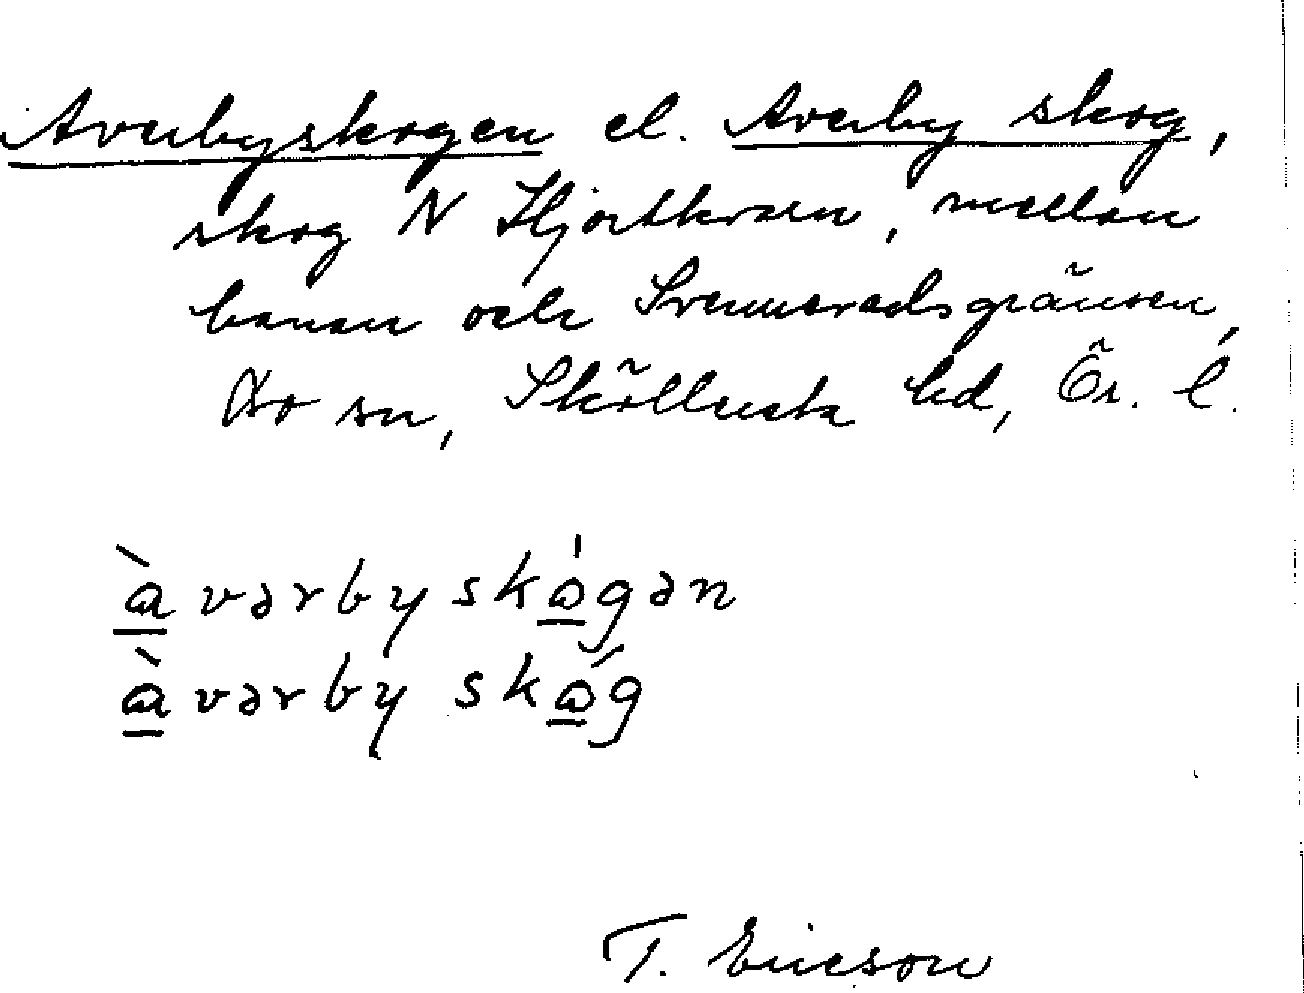 Averbyskogen el. Averby skog,
skog N Hjortkvarn, mellan
banan och Svennevadsgränsen,
Bo sn, Sköllersta hd, Ör. l.
ɑ̀vərbyskɷ́gən
ɑ̀vərby skɷ́g
T. Ericson